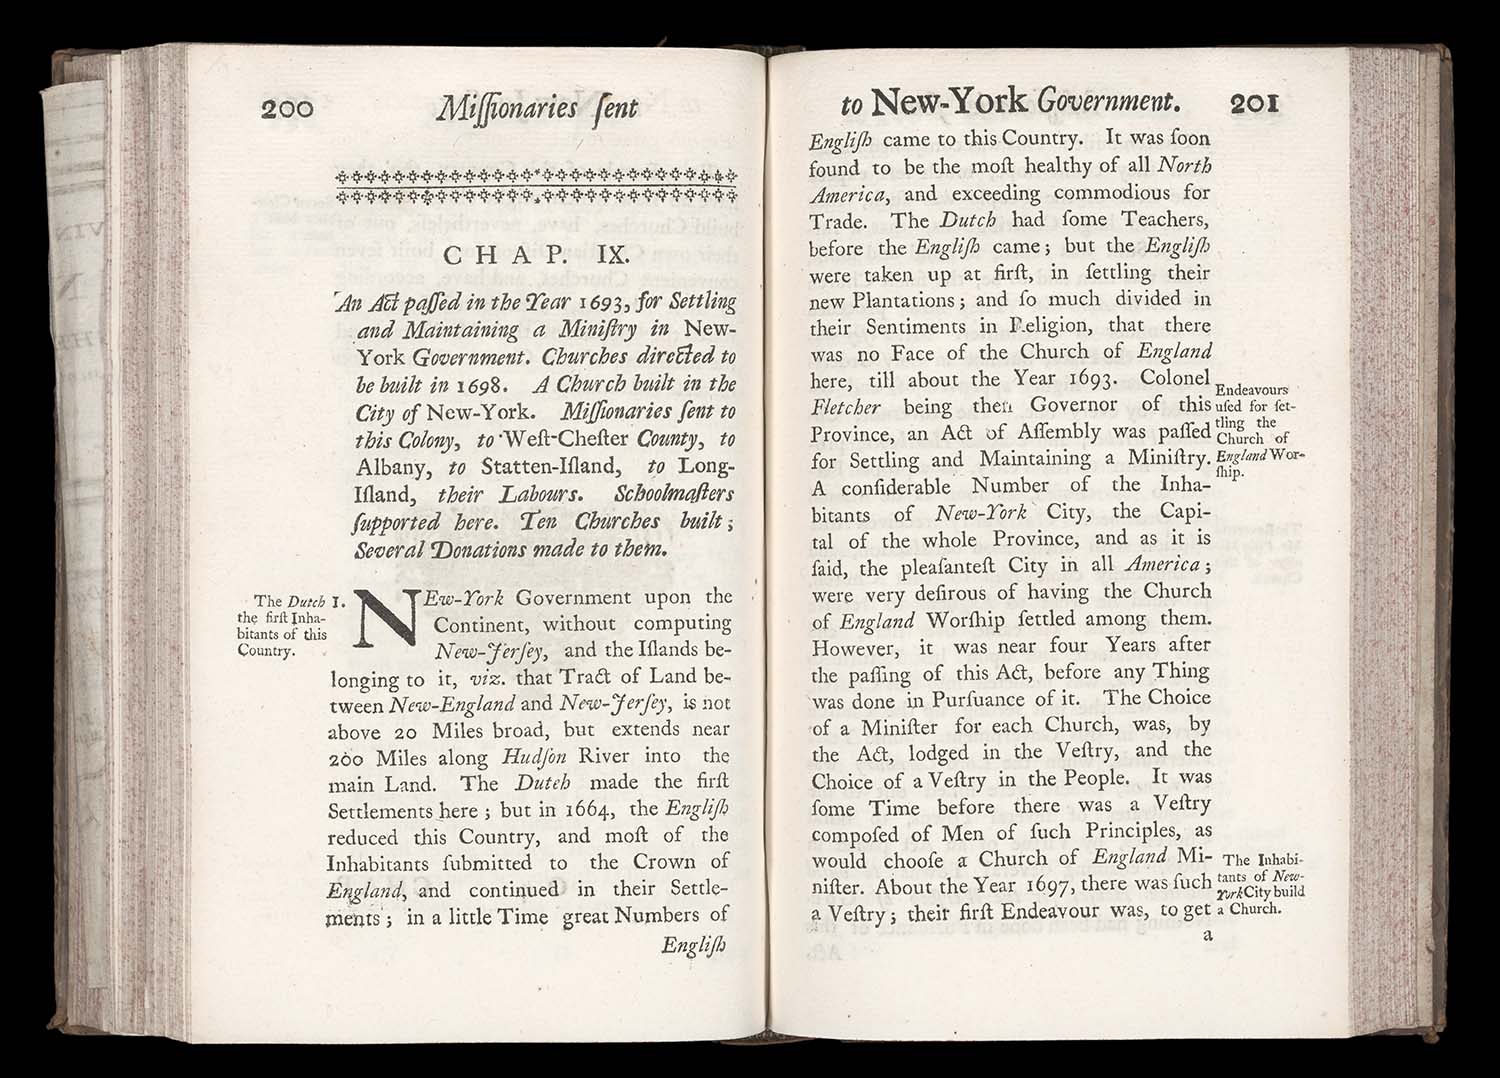 200 Miſſionaries ſent
CHAP. IX.
An Act paſſed in the Year 1693, for Settling
and Maintaining a Miniſtry in New-
York Government. Churches directed to
be built in 1698. A Church built in the
City of New-York. Miſſionaries ſent to
this Colony, to Weſt-Cheſter County, to
Albany, to Statten-Iſland, to Long-
Iſland, their Labours. Schoolmaſters
ſupported here. Ten Churches built;
Several Donations made to them.
The Dutch
the firſt Inha-
bitants of this
Country.
1. NEw-York Government upon the
Continent, without computing
New-Jerſey, and the Iſlands be-
longing to it, viz. that Tract of Land be-
tween New-England and New-Jerſey, is not
above 20 Miles broad, but extends near
200 Miles along Hudſon River into the
main Land. The Dutch made the firſt
Settlements here; but in 1664, the Engliſh
reduced this Country, and moſt of the
Inhabitants ſubmitted to the Crown of
England, and continued in their Settle-
ments; in a little Time great Numbers of
Engliſh
to New-York Government. 201
Engliſh came to this Country. It was ſoon
found to be the moſt healthy of all North
America, and exceeding commodious for
Trade. The Dutch had ſome Teachers,
before the Engliſh came; but the Engliſh
were taken up at firſt, in ſettling their
new Plantations; and ſo much divided in
their Sentiments in Religion, that there
was no Face of the Church of England
here, till about the Year 1693. Colonel
Fletcher being then Governor of this
Province, an Act of Aſſembly was paſſed
for Settling and Maintaining a Miniſtry.
A conſiderable Number of the Inha-
bitants of New-York City, the Capi-
tal of the whole Province, and as it is
ſaid, the pleaſanteſt City in all America;
were very deſirous of having the Church
of England Worſhip ſettled among them.
However, it was near four Years after
the paſſing of this Act, before any Thing
was done in Purſuance of it. The Choice
of a Miniſter for each Church, was, by
the Act, lodged in the Veſtry, and the
Choice of a Veſtry in the People. It was
ſome Time before there was a Veſtry
compoſed of Men of ſuch Principles, as
would chooſe a Church of England Mi-
niſter. About the Year 1697, there was ſuch
a Veſtry; their firſt Endeavour was, to get
a
Endeavours
uſed for ſet-
tling the
Church of
England Wor-
ſhip.
The Inhabi-
tants of New-
York City build
a Church.